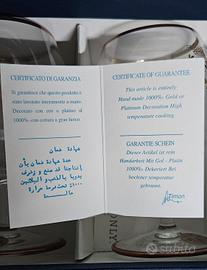 CERTIFICATO DI GARANZIA
Si garantisce che questo prodotto è
stato lavorato interamente a mano.
Decorato con oro e platino al
1000% con cottura a gran fuoco.
شهادة ضمان
هذه شهادة ضمان بأن
إنتاجنا قد صنع و زخرف
يدويا بالذهب و البلاتين
٪١٠٠٠ تحت درجة حرارة
عالية
CERTIFICATE OF GUARANTEE
This article is entirely
Hand made 1000% Gold or
Platinum Decoration High
temperature cooking.
GARANTIE SCHEIN
Dieser Artikel ist rein
Handarbeit Mit Gol - Platin
1000% Dekoriert Bei
hochster temperatur
gebrannt.
Timon
subito